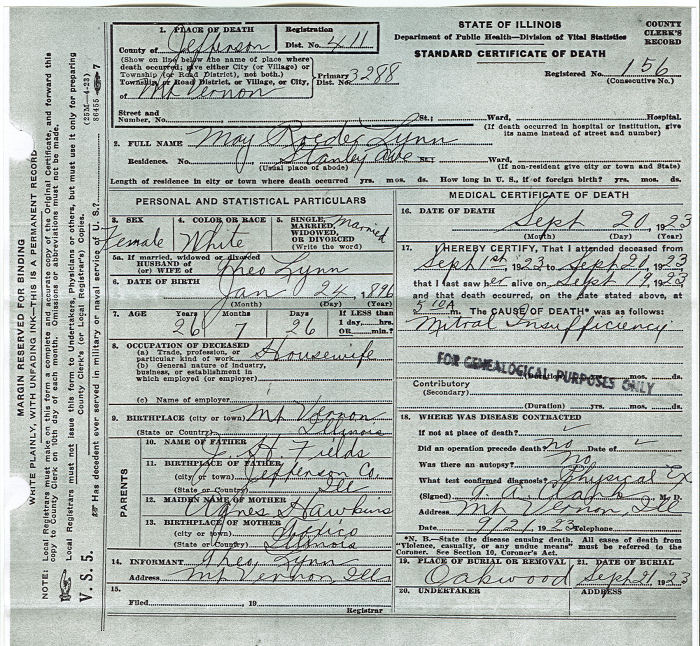 STATE OF ILLINOIS
Department of Public Health—Division of Vital Statistics
STANDARD CERTIFICATE OF DEATH
COUNTY CLERK'S RECORD
Registered No. 156
(Consecutive No.)
1. PLACE OF DEATH
County of Jefferson
Registration Dist. No. 411
(Show on line below the name of place where
death occurred; give either City (or Village) or
Township (or Road District), not both.)
Township, or Road District, or Village, or City,
of Mt Vernon
Primary Dist. No. 3288
Street and Number, No. St.; Ward, Hospital.
(If death occurred in hospital or institution, give
its name instead of street and number)
2. FULL NAME May Roeder Lynn
Residence. No. Stanley Ave St.; Ward,
(Usual place of abode) (If non-resident give city or town and State)
Length of residence in city or town where death occurred yrs. mos. ds. How long in U. S., if of foreign birth? yrs. mos. ds.
PERSONAL AND STATISTICAL PARTICULARS
3. SEX Female
4. COLOR OR RACE White
5. SINGLE, MARRIED, WIDOWED, OR DIVORCED (Write the word) Married
5a. If married, widowed or divorced
HUSBAND of
(or) WIFE of Theo Lynn
6. DATE OF BIRTH Jan 24, 1896
(Month) (Day) (Year)
7. AGE Years 26 Months 7 Days 26 If LESS than 1 day, hrs. OR min.?
8. OCCUPATION OF DECEASED
(a) Trade, profession, or
particular kind of work Housewife
(b) General nature of industry,
business, or establishment in
which employed (or employer)
(c) Name of employer
9. BIRTHPLACE (city or town) Mt Vernon
(State or Country) Illinois
PARENTS
10. NAME OF FATHER Fields
11. BIRTHPLACE OF FATHER
(city or town) Jefferson Co.
(State or Country) Ill
12. MAIDEN NAME OF MOTHER Agnes Hawkins
13. BIRTHPLACE OF MOTHER
(city or town)
(State or Country) Illinois
14. INFORMANT Theo Lynn
Address Mt Vernon Ills
15.
Filed, 19
Registrar
MEDICAL CERTIFICATE OF DEATH
16. DATE OF DEATH Sept 20, 1923
(Month) (Day) (Year)
17. I HEREBY CERTIFY, That I attended deceased from
Sept 1st, 1923 to Sept 20, 1923
that I last saw her alive on Sept 19, 1923
and that death occurred, on the date stated above, at
m. The CAUSE OF DEATH* was as follows:
Mitral Insufficiency
FOR GENEALOGICAL PURPOSES ONLY
(Duration) yrs. mos. ds.
Contributory
(Secondary)
(Duration) yrs. mos. ds.
18. WHERE WAS DISEASE CONTRACTED
If not at place of death?
Did an operation precede death? no Date of
Was there an autopsy? No
What test confirmed diagnosis? Physical Ex
(Signed) Clark M. D.
Address Mt Vernon, Ill
Date 9/21, 1923 Telephone
*N. B.—State the disease causing death. All cases of death from
"violence, casualty, or any undue means" must be referred to the
Coroner. See Section 10, Coroner's Act.
19. PLACE OF BURIAL OR REMOVAL Oakwood
21. DATE OF BURIAL Sept 21, 1923
20. UNDERTAKER ADDRESS
MARGIN RESERVED FOR BINDING
WRITE PLAINLY, WITH UNFADING INK—THIS IS A PERMANENT RECORD
NOTE: Local Registrars must make on this form a complete and accurate copy of the Original Certificate, and forward this
copy to County Clerk on 10th day of each month. Omissions or abbreviations must not be made.
Local Registrars must not issue this form to Undertakers, Physicians or others, but must use it only for preparing
County Clerk's (or Local Registrar's) Copies.
V. S. 5.
(25M—4-23)
86455 7
Has decedent ever served in military or naval service of U. S.?